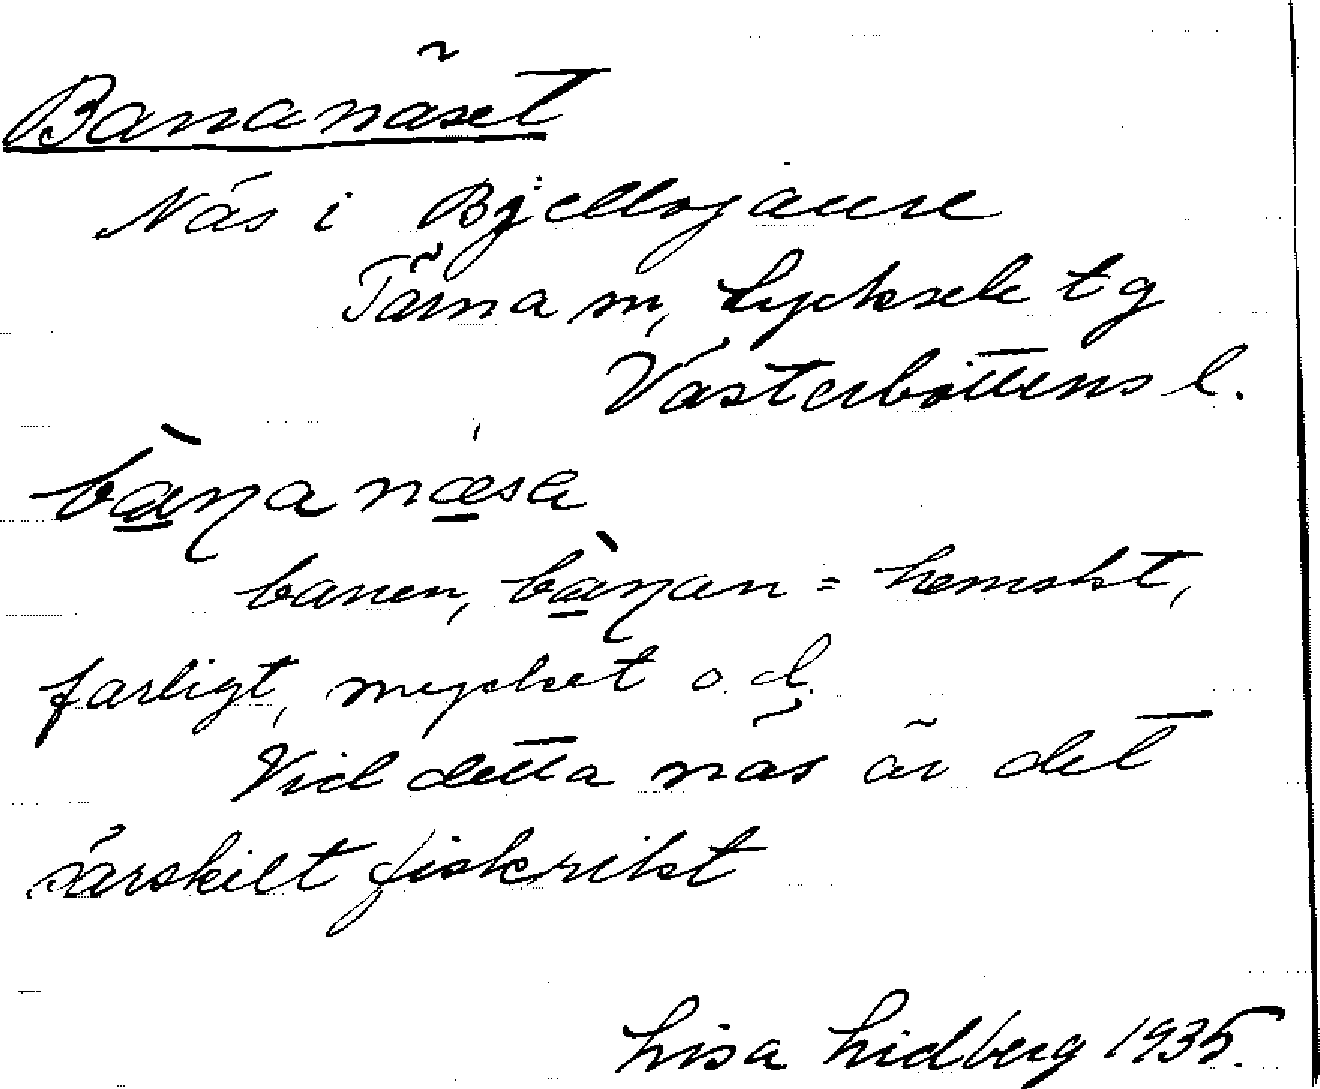 Bananäset
Näs i Bjellojaure
Tärna sn, Lycksele tg
Västerbottens l.
bàŋa næsa
banen, bàŋan = hemskt,
farligt, mycket o.d.
Vid detta näs är det
särskilt fiskrikt
Lisa Lidberg 1935.